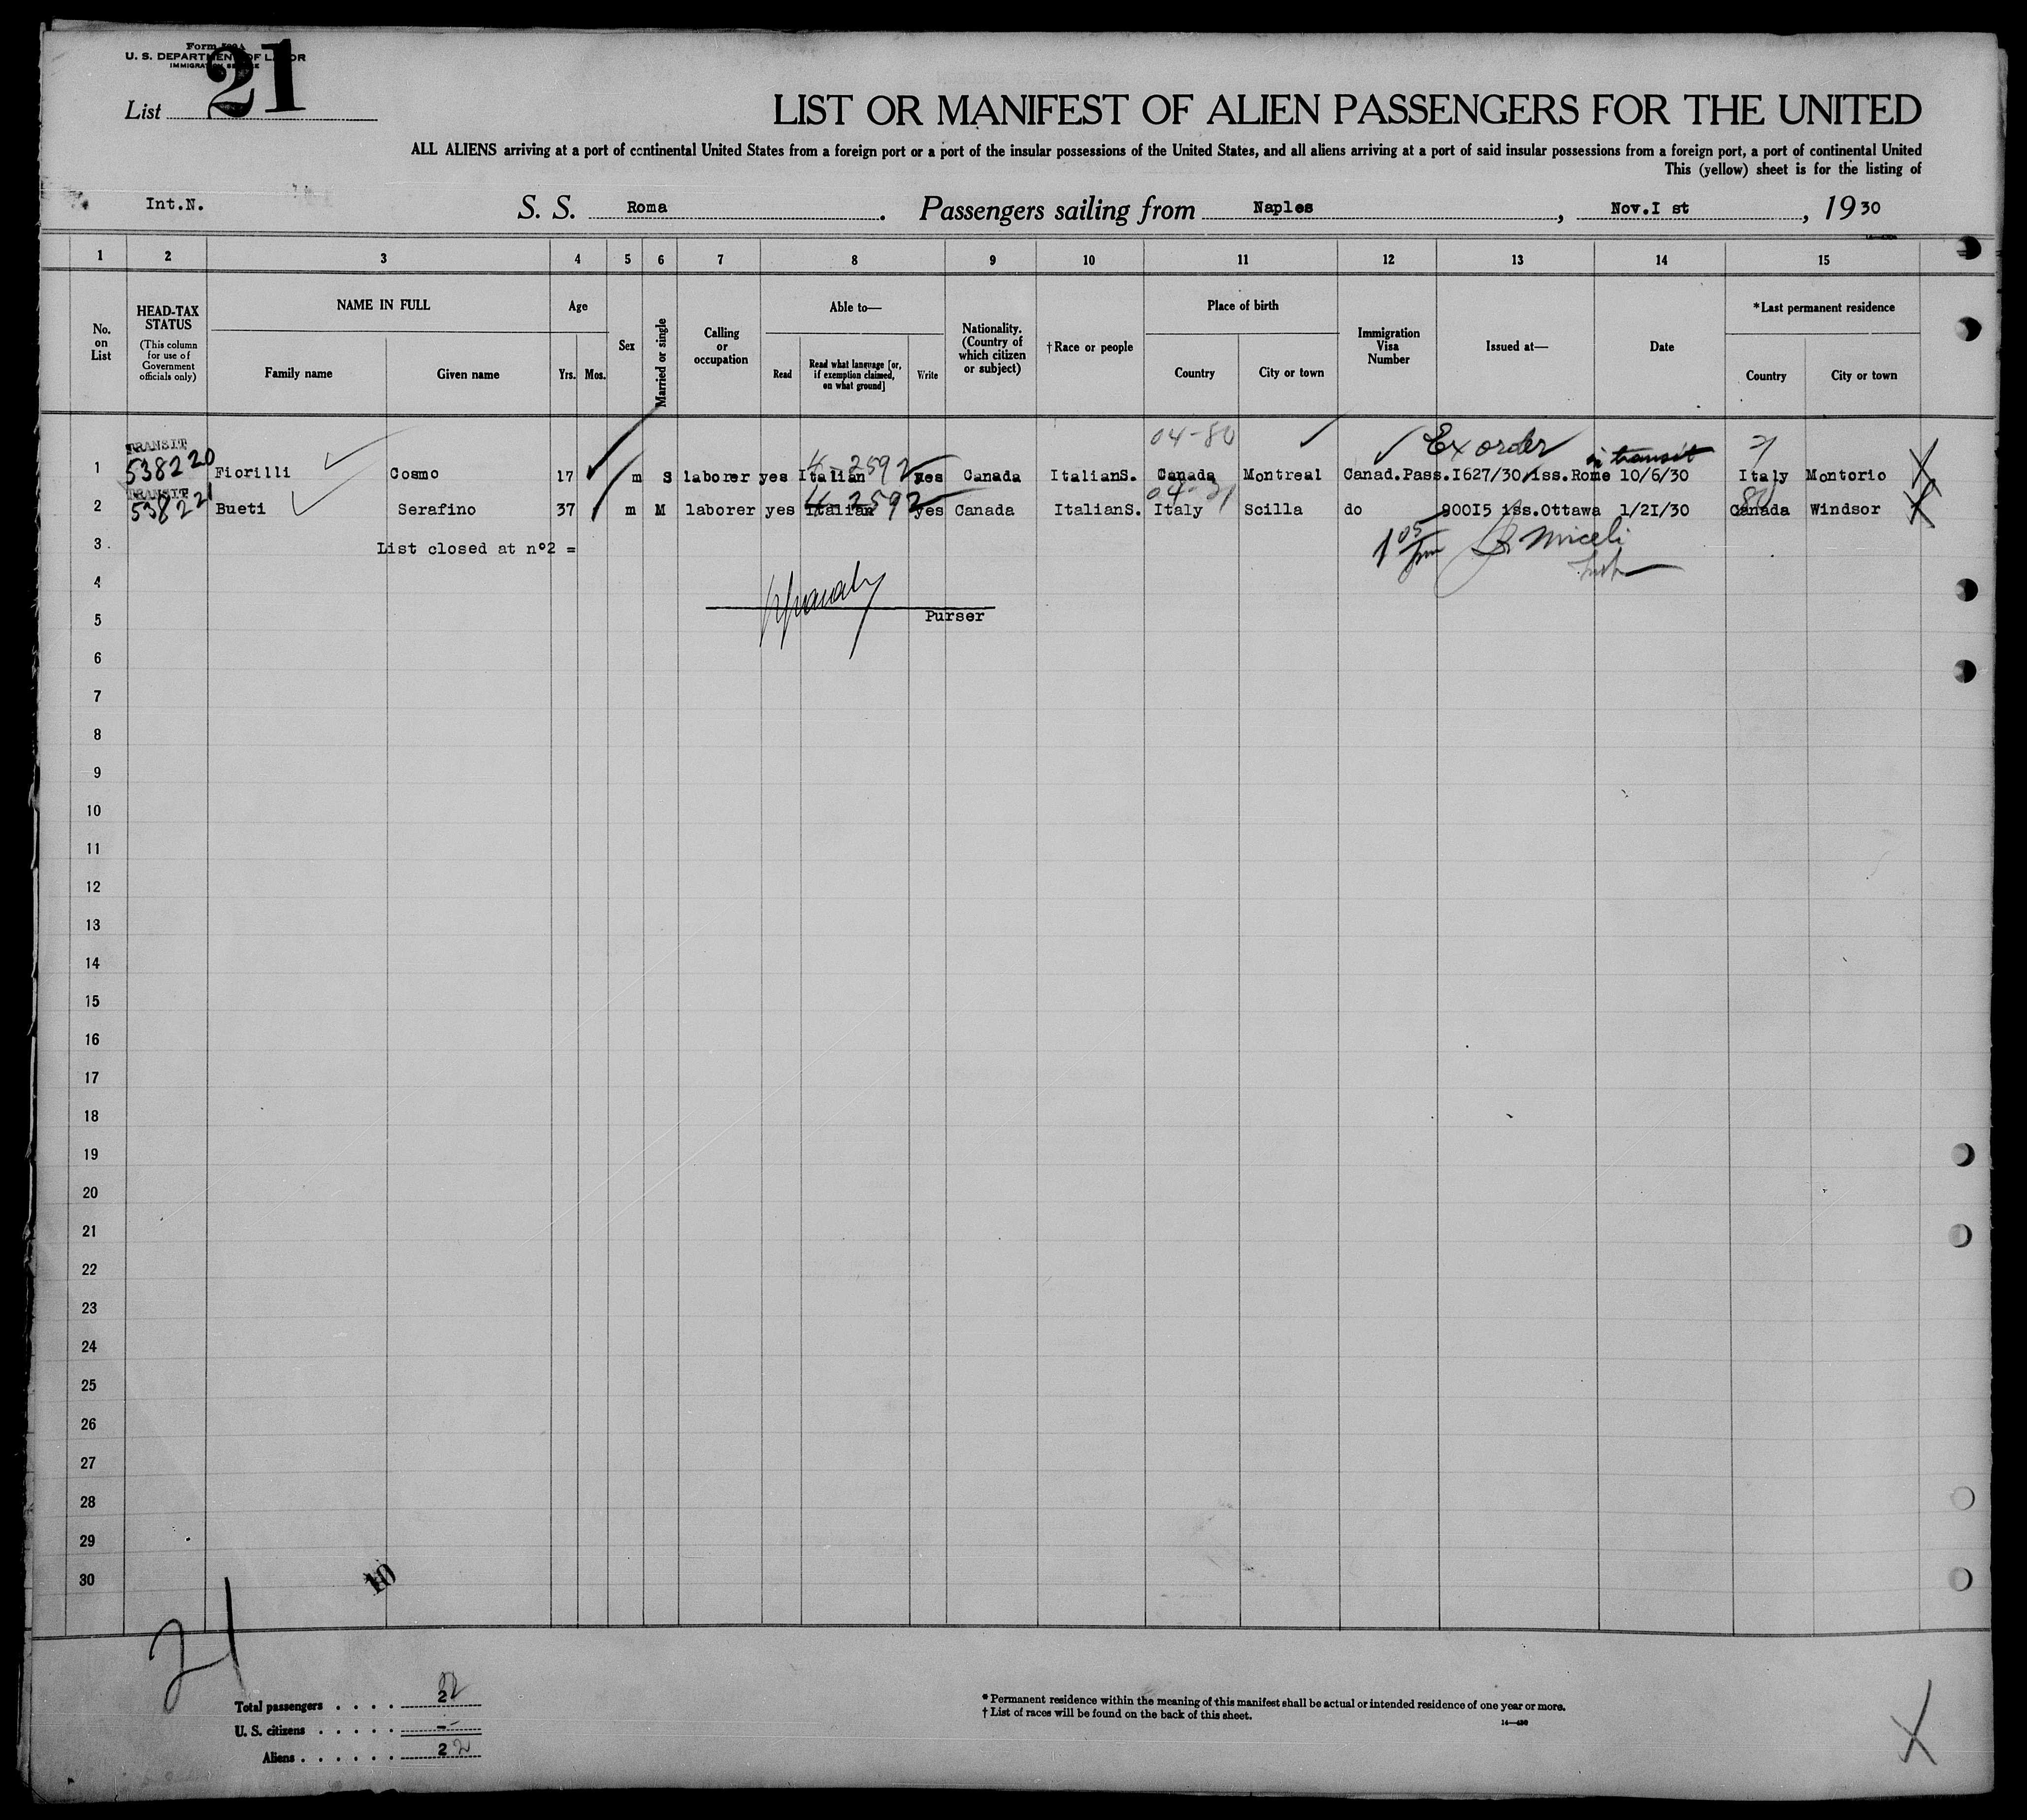 Form 500A
U. S. DEPARTMENT OF LABOR
IMMIGRATION SERVICE
List 21
LIST OR MANIFEST OF ALIEN PASSENGERS FOR THE UNITED
ALL ALIENS arriving at a port of continental United States from a foreign port or a port of the insular possessions of the United States, and all aliens arriving at a port of said insular possessions from a foreign port, a port of continental United
This (yellow) sheet is for the listing of
Int.N. S. S. Roma. Passengers sailing from Naples, Nov.I st, 1930
1 2 3 4 5 6 7 8 9 10 11 12 13 14 15
No. on List
HEAD-TAX STATUS
(This column for use of Government officials only)
NAME IN FULL
Family name Given name
Age
Yrs. Mos.
Sex
Married or single
Calling or occupation
Able to—
Read Read what language [or, if exemption claimed, on what ground] Write
Nationality. (Country of which citizen or subject)
†Race or people
Place of birth
Country City or town
Immigration Visa Number
Issued at—
Date
*Last permanent residence
Country City or town
TRANSIT 04-80 Ex order in transit
1 538220 Fiorilli Cosmo 17 m S laborer yes Italian 2592 yes Canada ItalianS. Canada Montreal Canad.Pass.I627/30 iss.Rome 10/6/30 Italy Montorio
TRANSIT
2 538221 Bueti Serafino 37 m M laborer yes Italian 2592 yes Canada ItalianS. Italy Scilla do 90015 iss.Ottawa 1/2I/30 Canada Windsor
3 List closed at n°2 =
1 05 pm Miceli
4
5 Purser
6
7
8
9
10
11
12
13
14
15
16
17
18
19
20
21
22
23
24
25
26
27
28
29
30
10
21
Total passengers . . . . 2 2
U. S. citizens . . . . . -
Aliens . . . . . . 2 2
* Permanent residence within the meaning of this manifest shall be actual or intended residence of one year or more.
† List of races will be found on the back of this sheet.